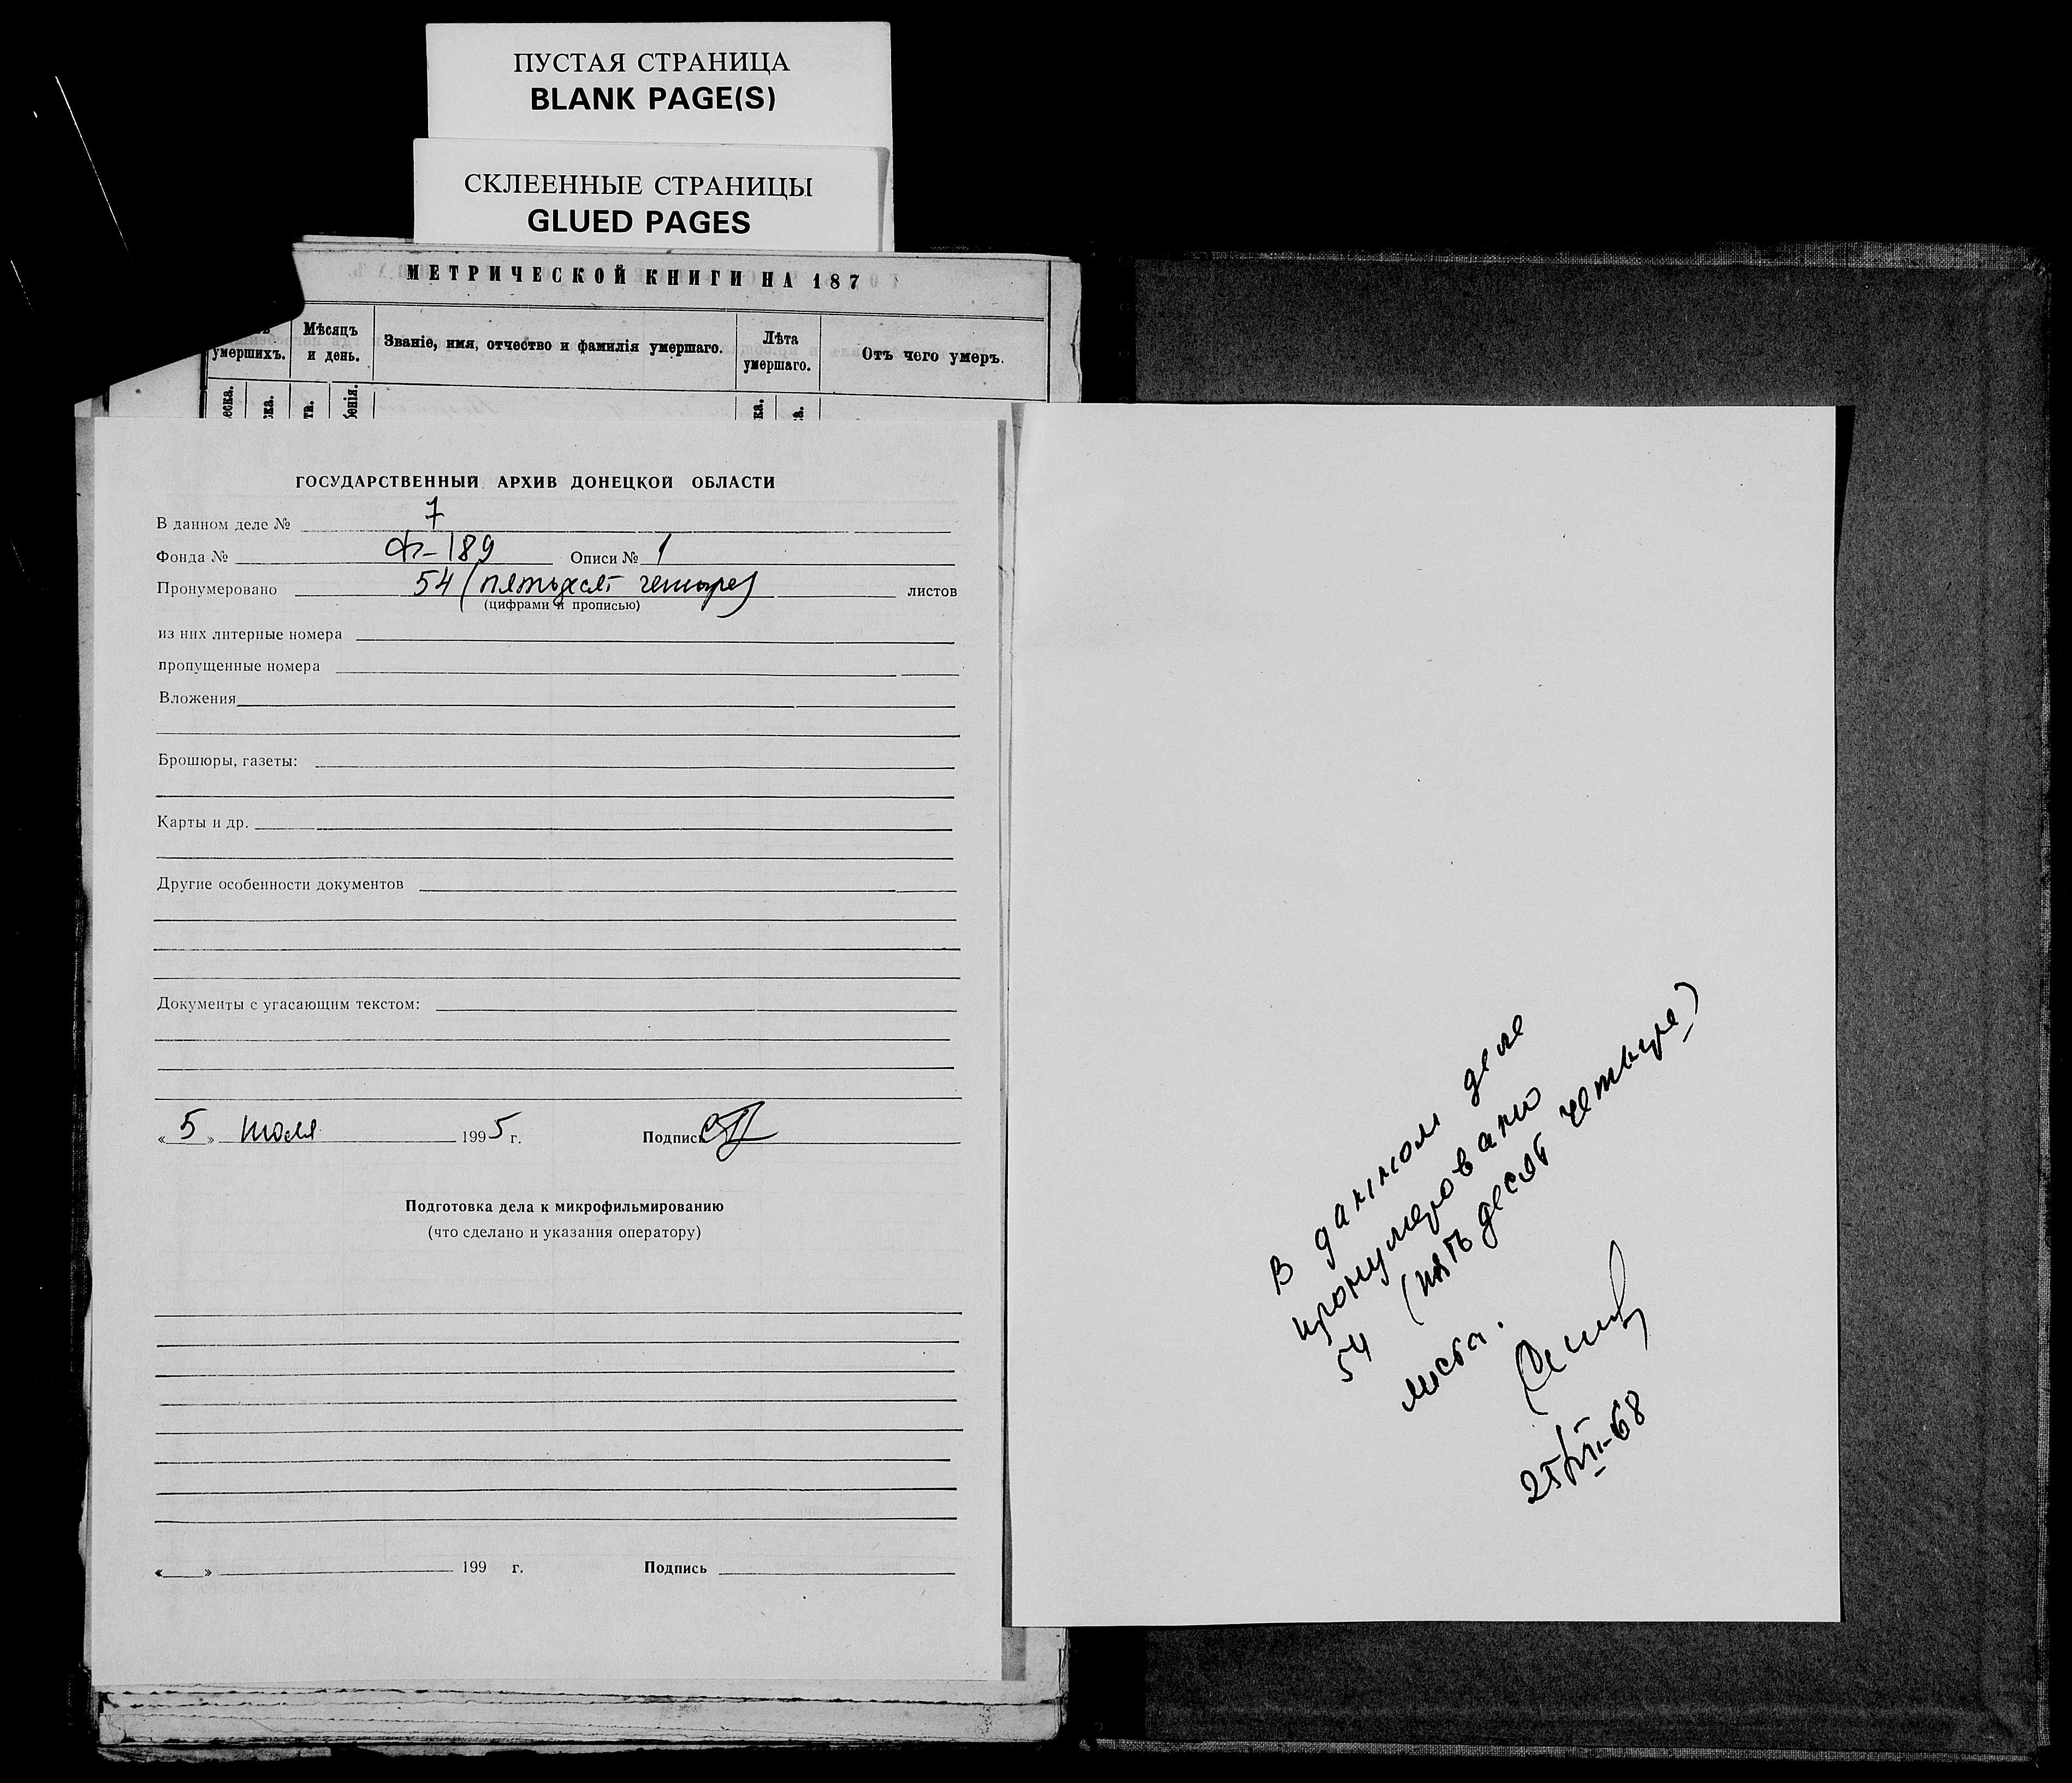 ПУСТАЯ СТРАНИЦА
BLANK PAGE(S)
СКЛЕЕННЫЕ СТРАНИЦЫ
GLUED PAGES
МЕТРИЧЕСКОЙ КНИГИ НА 187
умершихъ.
Мѣсяцъ
и день.
Званіе, имя, отчество и фамилія умершаго.
Лѣта
умершаго.
Отъ чего умеръ.
ГОСУДАРСТВЕННЫЙ АРХИВ ДОНЕЦКОЙ ОБЛАСТИ
В данном деле № 7
Фонда № Ф-189 Описи № 1
Пронумеровано 54 (пятьдесят четыре) листов
(цифрами и прописью)
из них литерные номера
пропущенные номера
Вложения
Брошюры, газеты:
Карты и др.
Другие особенности документов
Документы с угасающим текстом:
« 5 » июля 1995 г. Подпись
Подготовка дела к микрофильмированию
(что сделано и указания оператору)
« » 199 г. Подпись
В данном деле
пронумеровано
54 (пятьдесят четыре)
листа.